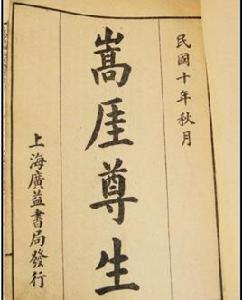 民國十年秋月
嵩厓尊生
上海廣益書局發行